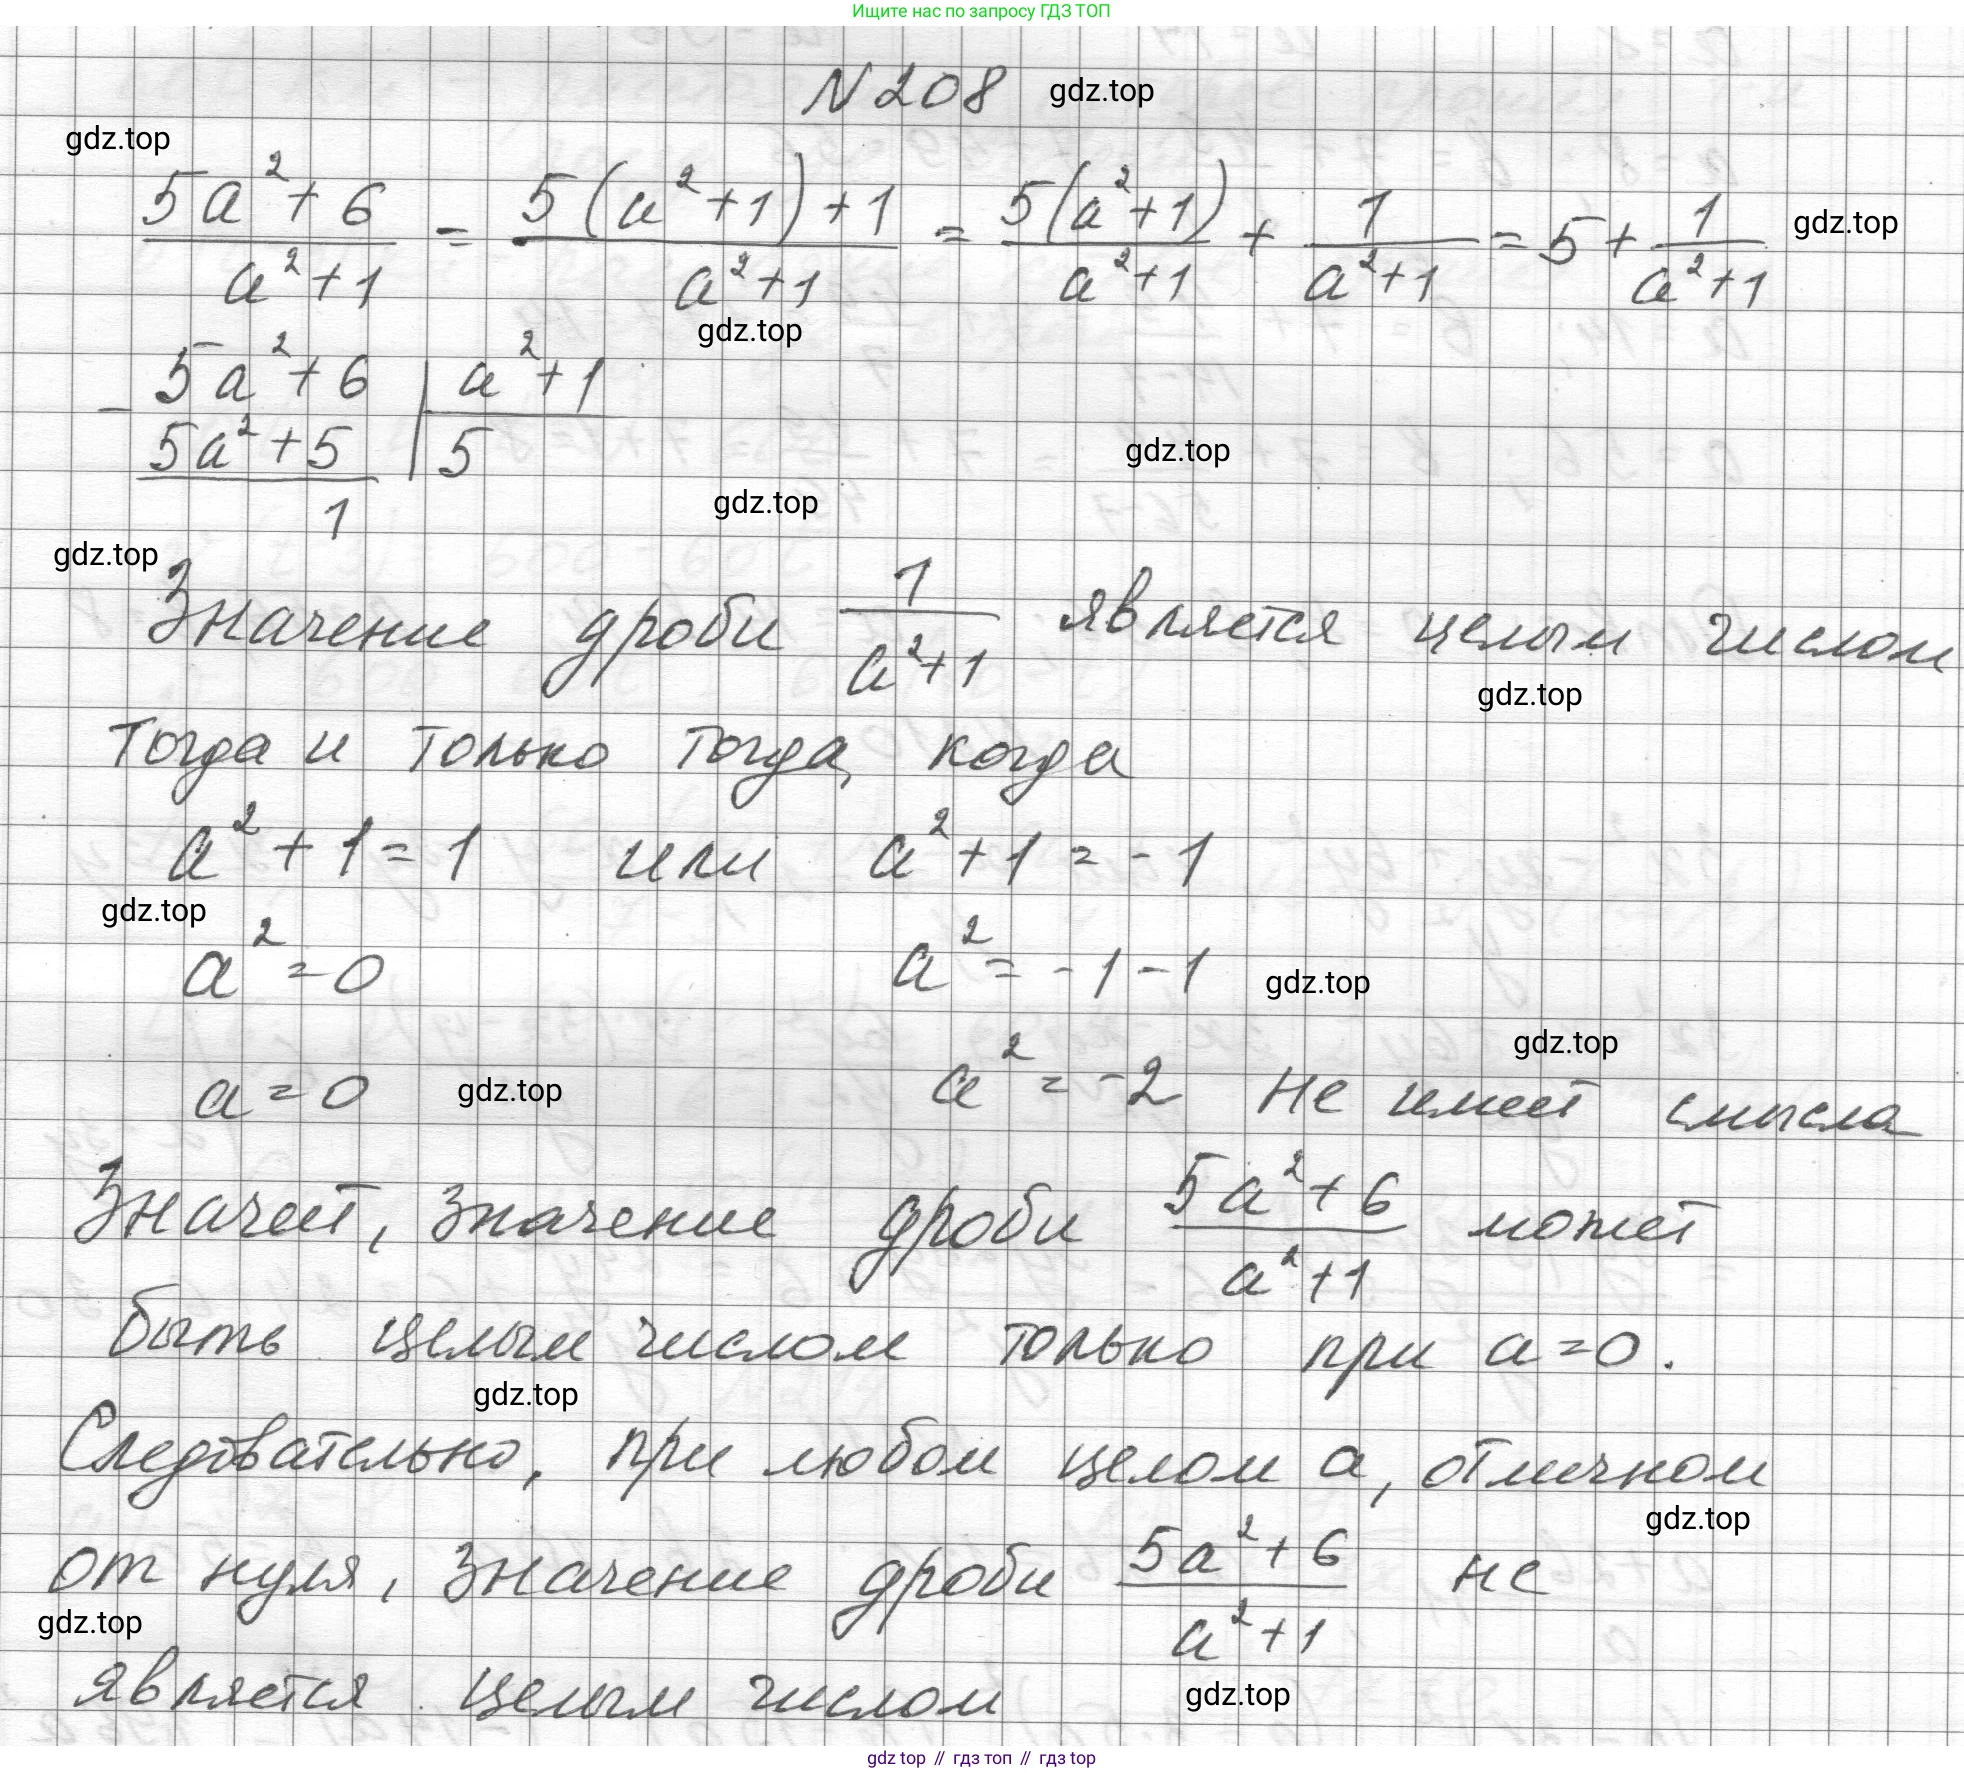 Ищите нас по запросу ГДЗ ТОП
N 208 gdz.top
gdz.top
(5a² + 6)/(a² + 1) = (5(a² + 1) + 1)/(a² + 1) = (5(a² + 1))/(a² + 1) + 1/(a² + 1) = 5 + 1/(a² + 1) gdz.top
gdz.top
- 5a² + 6 | a² + 1
5a² + 5 | 5
gdz.top
1
gdz.top
gdz.top
Значение дроби 1/(a² + 1) является целым числом
gdz.top
тогда и только тогда, когда
a² + 1 = 1 или a² + 1 = -1
gdz.top
a² = 0 a² = -1 - 1 gdz.top
gdz.top
a = 0 gdz.top a² = -2 не имеет смысла
Значит, значение дроби (5a² + 6)/(a² + 1) может
быть целым числом только при a = 0.
gdz.top
Следовательно, при любом целом a, отличном
gdz.top
от нуля, значение дроби (5a² + 6)/(a² + 1) не
gdz.top
является целым числом gdz.top
gdz top // гдз топ // гдз top